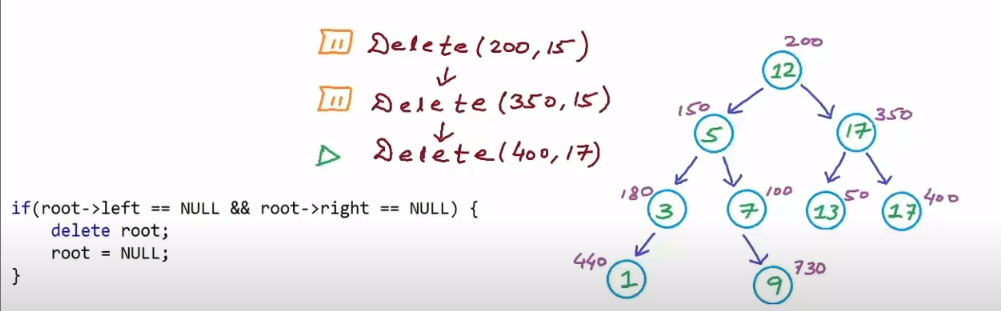 Delete(200,15)
Delete(350,15)
Delete(400,17)
if(root->left == NULL && root->right == NULL) {
delete root;
root = NULL;
}
200
12
150
5
350
17
180
3
100
7
50
13
400
17
440
1
730
9